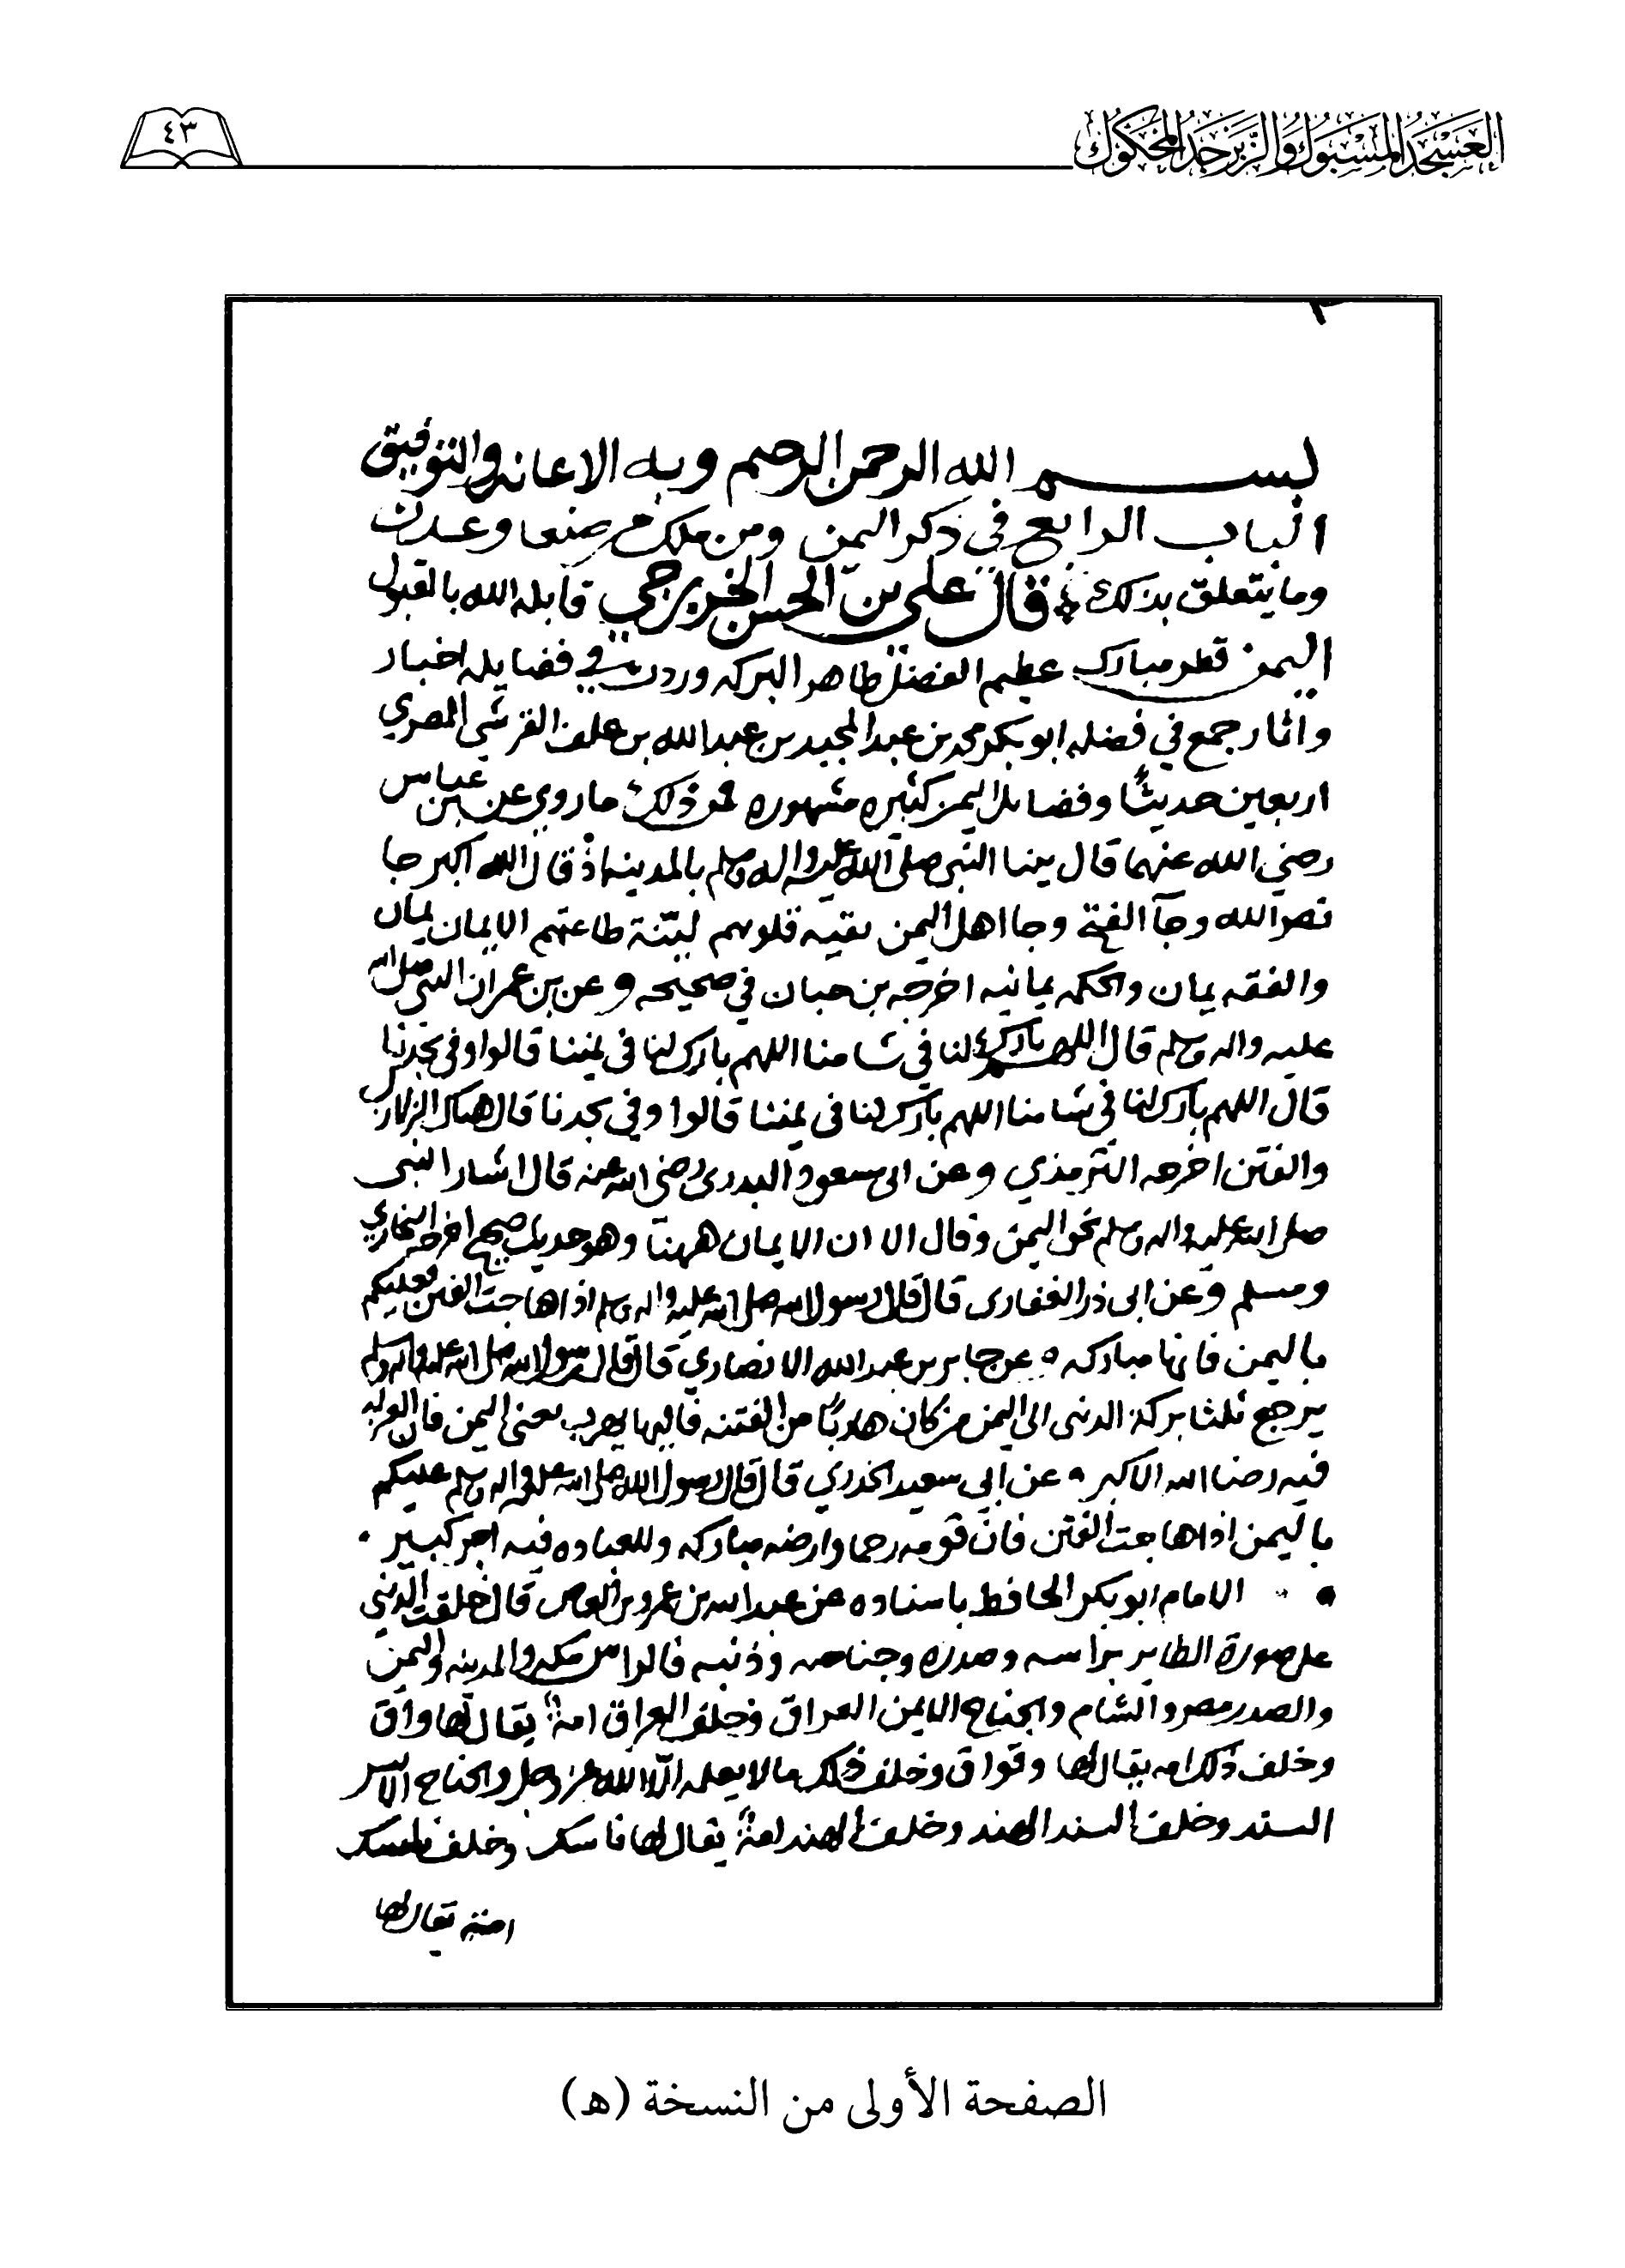 العسجد المسبوك والزبرجد المحكوك
٤٣
٣
بسم الله الرحمن الرحيم وبه الاعانه والتوفيق
الباب الرابع في ذكر اليمن ومن ملك صنعا وعدن
وما يتعلق بذلك قال علي بن الحسن الخزرجي قابله الله بالقبول
اليمن قطر مبارك عظيم الفضل ظاهر البركه وردت في فضايله اخبار
واثار جمع في فضله ابو بكر محمد بن عبد المجيد بن عبد الله بن خلف القرشي المصري
اربعين حديثا وفضايل اليمن كثيره مشهوره فمن ذلك ما روي عن بن عباس
رضي الله عنهما قال بينا النبي صلى الله عليه واله وسلم بالمدينه اذ قال الله اكبر جا
نصر الله وجآ الفتح وجا اهل اليمن نقيه قلوبهم لينة طاعتهم الايمان يمان
والفقه يمان والحكمه يمانيه اخرجه بن حبان في صحيحه وعن بن عمر ان النبي صلى الله
عليه واله وسلم قال اللهم بارك لنا في شامنا اللهم بارك لنا في يمننا قالوا وفي نجدنا
قال اللهم بارك لنا في شامنا اللهم بارك لنا في يمننا قالوا وفي نجدنا قال هناك الزلازل
والفتن اخرجه الترمذي وعن ابى مسعود البدرى رضي الله عنه قال اشار النبى
صلى الله عليه واله وسلم نحو اليمن وقال الا ان الايمان ههنا وهو حديث صحيح اخرجه البخاري
ومسلم وعن ابى ذر الغفارى قال قال رسول الله صلى الله عليه واله وسلم اذا هاجت الفتن فعليكم
باليمن فانها مباركه وعن جابر بن عبد الله الانصاري قال قال رسول الله صلى الله عليه واله وسلم
يرجع ثلثا بركة الدنى الى اليمن من كان هاربا من الفتنه فاليها يهرب يعنى اليمن فان
فيه رضا الله الاكبر وعن ابي سعيد الخدري قال قال رسول الله صلى الله عليه واله وسلم عليكم
باليمن اذا هاجت الفتن فان قومه رحما وارضه مباركه وللعباده فيه اجر كبير
الامام ابو بكر الحافظ باسناده عن عبد الله بن عمرو بن العاص قال خلقت الدنيى
على صورة الطاير براسه وصدره وجناحه وذنبه فالراس مكه والمدينه واليمن
والصدر مصر والشام والجناح الايمن العراق وخلف العراق امة يقال لها واق
وخلف ذلك امه يقال لها وقواق وخلف ذلك ما لا يعلمه الا الله عز وجل والجناح الايسر
السند وخلف السند الهند وخلف الهند امة يقال لها ناسك وخلف ناسك
امة يقال لها
الصفحة الأولى من النسخة (هـ)